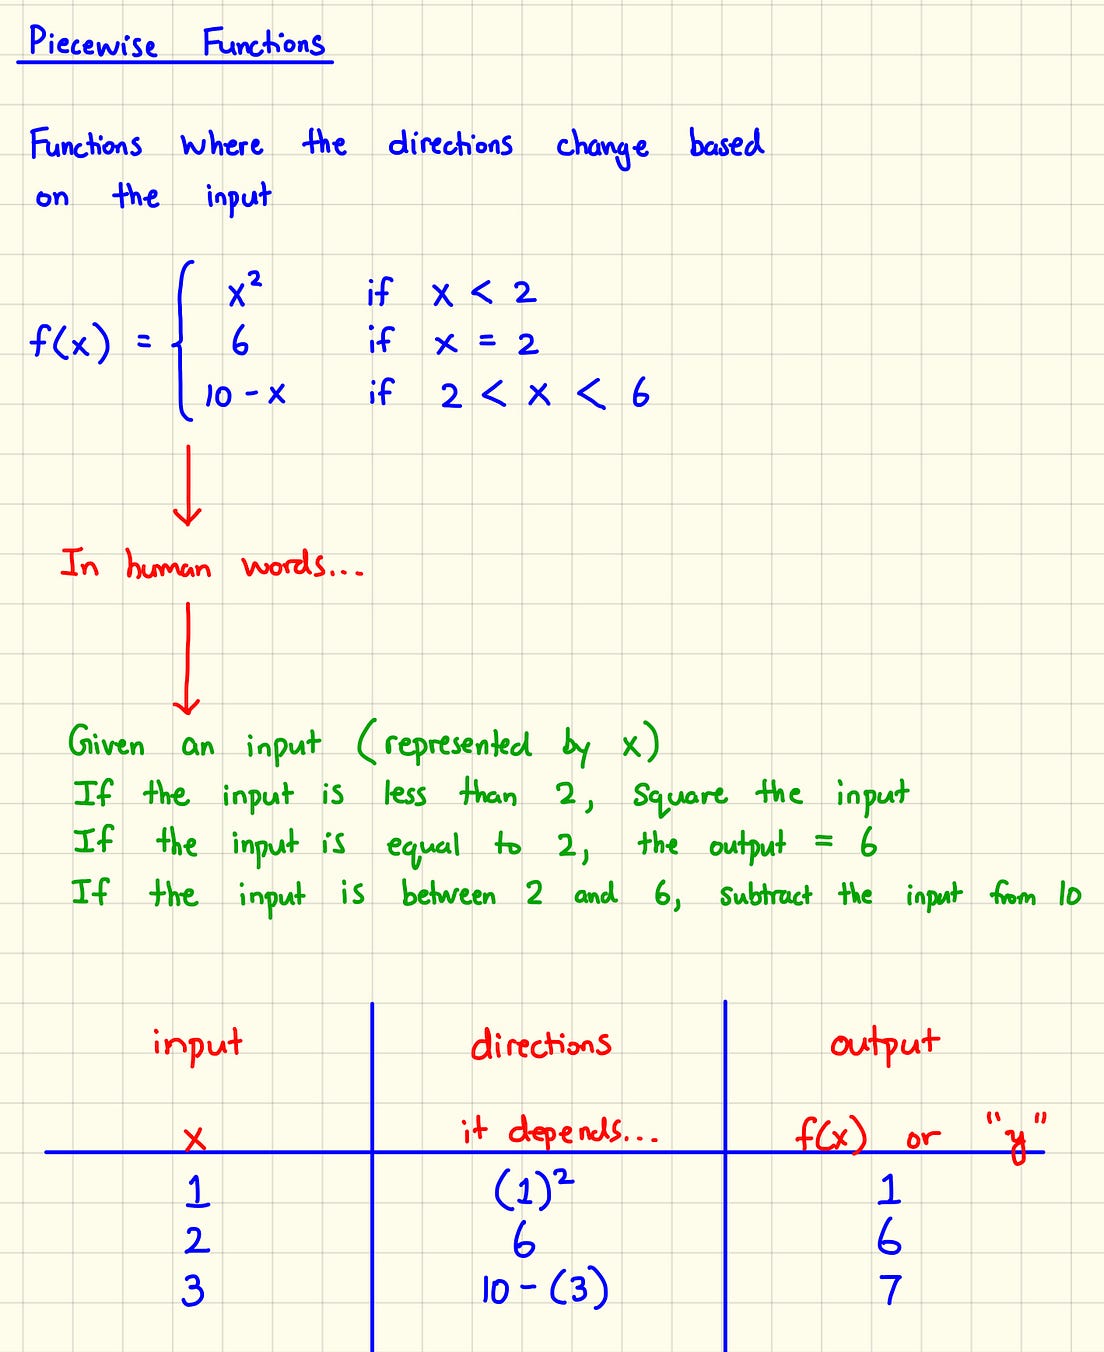 Piecewise Functions
Functions where the directions change based
on the input
f(x) = { x² if x < 2
6 if x = 2
10 - x if 2 < x < 6
In human words...
Given an input (represented by x)
If the input is less than 2, square the input
If the input is equal to 2, the output = 6
If the input is between 2 and 6, subtract the input from 10
input directions output
x it depends... f(x) or "y"
1 (1)² 1
2 6 6
3 10 - (3) 7